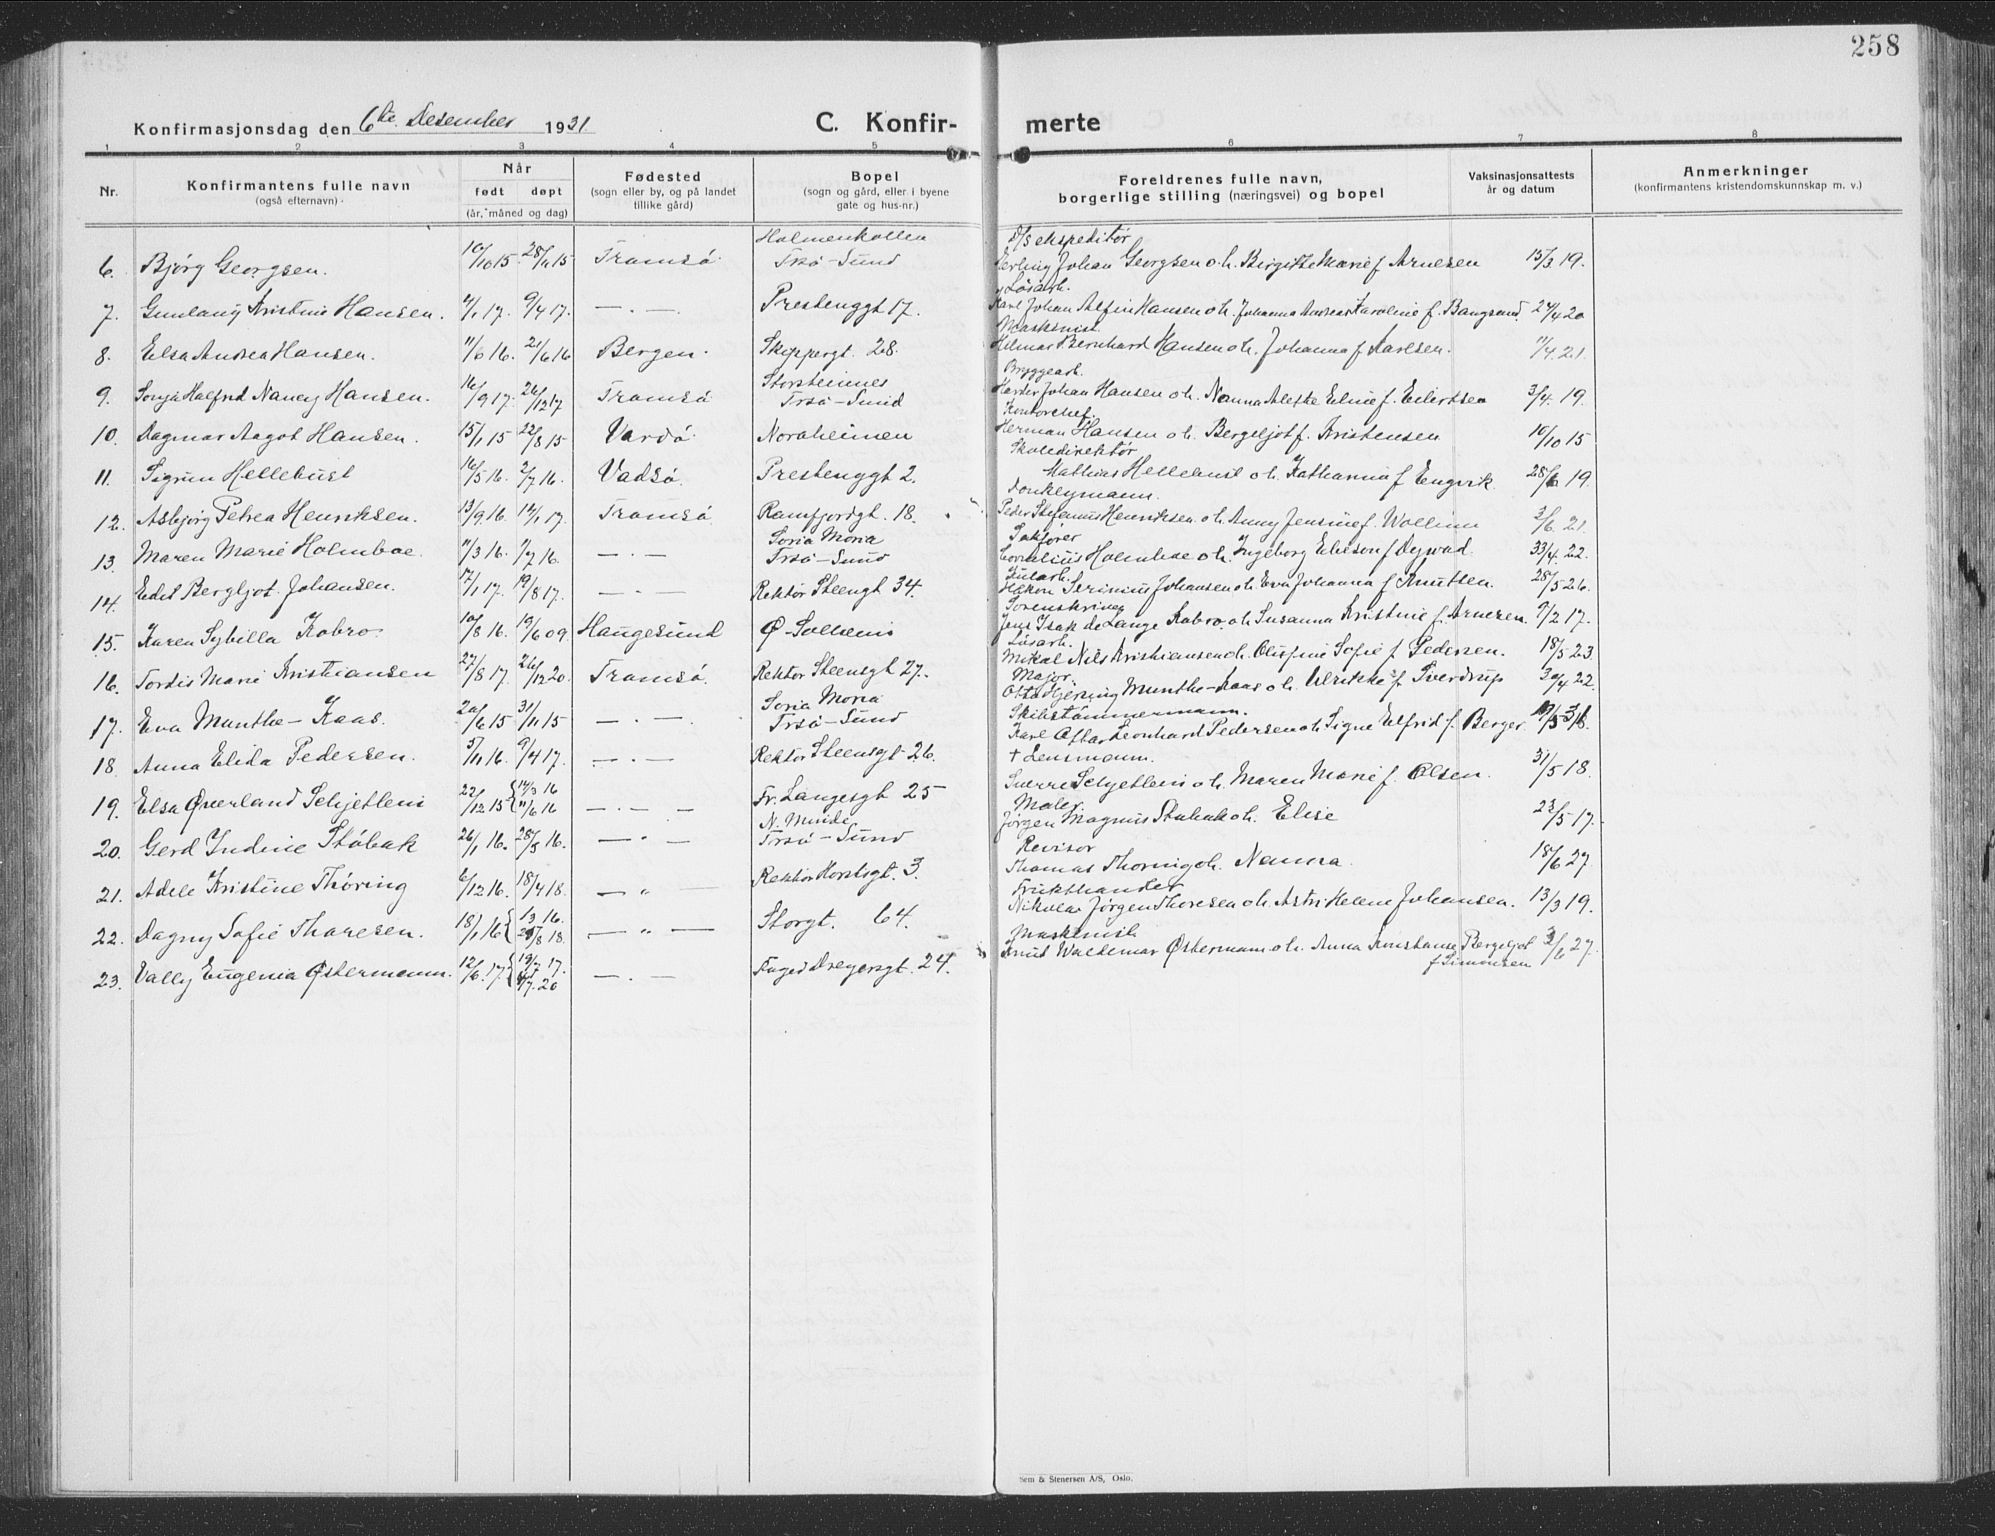 258
Konfirmasjonsdag den 6te Desember 1931
C. Konfir- merte
1 2 3 4 5 6 7 8
Nr.
Konfirmantens fulle navn
(også efternavn)
Når
født døpt
(år, måned og dag)
Fødested
(sogn eller by, og på landet
tillike gård)
Bopel
(sogn og gård, eller i byene
gate og hus-nr.)
Foreldrenes fulle navn,
borgerlige stilling (næringsvei) og bopel
Vaksinasjonsattests
år og datum
Anmerkninger
(konfirmantens kristendomskunnskap m. v.)
Holmenkollen D/S ekspeditør
6. Bjørg Georgsen. 10/10 15. 28/11 15 Tromsø Tsø-Sund Erling Johan Georgsen o.h. Birgitte Marie f Arnesen 15/3 19.
Løsarb.
7. Gunlaug Kristine Hansen. 4/1 17. 9/4 17. — . — Prestenggt 17. Karl Johan Alfin Hansen o.h. Johanna Andrea Karoline f. Bangsund 24/4 20
Maskinist.
8. Elsa Andrea Hansen. 11/6 16. 21/6 16 Bergen. Skippergt. 28. Hilmar Bernhard Hansen o.h. Johanna f Karlsen. 11/4. 21.
Storsteinnes Bryggearb.
9. Sonja Halfrid Nancy Hansen. 16/9 17. 26/12 17 Tromsø Trsø-Sund Johan Hansen o.h. Nanna Aletke Eline f. Eilertsen 3/4. 19.
Kontorchef.
10. Dagmar Aagot Hansen. 15/1 15 22/8 15 Vardø Noraheimen Herman Hansen o.h. Bergeljot f. Kristensen 10/10 15
Skoledirektør
11. Sigrun Hellebust 16/5 16. 2/7 16. Vadsø. Prestenggt 2. Mathias Hellebust o.h. Katharina f Engvik. 28/6 19.
Donkeymann.
12. Asbjørg Petrea Henriksen. 13/9 16. 14/1 17. Tromsø Ramfjordgt. 18. Peder Stefanus Henriksen o.h. Anny Jensine f. Wollinn 3/6. 21.
Soria Moria Sakfører
13. Maren Marie Holmboe. 11/3 16. 1/7 16. — . — Trsø-Sund Cornelius Holmboe o.h. Ingeborg f Dyevad. 22.
14. Edit Bergljot Johansen. 17/1 17. 19/8 17. — . — Rektor Steengt 34. Håkon Johansen o.h. Eva Johanna f Knutsen. 28/5 26.
Sorenskriver
15. Karen Sybilla Kobro. 10/8 16. 19/6 09. Haugesund Ø-Solheim Jens Isak de Lange Kobro. o.h. Susanna Kristine f. Arnesen. 9/2 17.
Løsarb.
16. Tordis Marie Kristiansen 27/8 17. 26/12 20. Tromsø. Rektor Steensgt 27. Mikal Nils Kristiansen o.h. Olufine Sofie f Pedersen. 18/5 23.
Soria Moria Major.
17. Eva Munthe-Kaas. 20/6 15 31/10 15 — . — Trsø-Sund Otto Hjersing Munthe-Kaas o.h. Ulrikke f. Sverdrup 30/4 22.
Skibstømmermann.
18. Anna Elida Pedersen. 5/11 16. 9/4 17. — . — Rektor Steensgt 26. Karl Ottar Leonhard Pedersen o.h. Signe Elfrid f. Berger.
+ Lensmann.
19. Elsa Øverland Schjetlein 22/12 15 { 14/3 16 11/6 16 — . — Fr. Langesgt 25 Sverre Schjetlein o.h. Maren Marie f. Olsen. 31/5 18.
N. Minde Maler.
20. Gerd Indine Støbak 26/1 16. 28/5 16. — " — Trsø-Sund Jørgen Magnus Støbak o.h. Elise 23/5 17.
Revisor
21. Adele Kristine Thøring 6/12 16. 18/4 18. — " — Rektor Horstsgt. 3. Thomas Thøring o.h. Nanna. 18/6 27.
Frukthandler
22. Dagny Sofie Thoresen. 18/1 16 { — " — Storgt. 64. Nikolai Jørgen Thoresen o.h. Astri Helene Johansen. 13/3 19.
Maskinist
23. Vally Eugenia Østermann. 12/6. 17. { — . — Foged Dreyersgt. 24. Knut Waldemar Østermann o.h. Anna Konstanse Bergeljot 27.
f Simonsen
Sem & Stenersen A/S, Oslo.